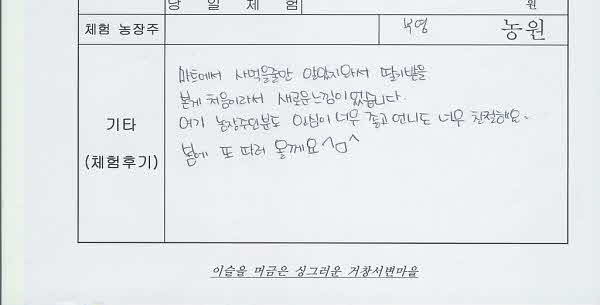 당 일 체 험 원
체험 농장주 부영 농원
마트에서 사먹을줄만 알았지와서 딸기밭을
본게 처음이라서 새로운느낌이 었습니다.
여기 농장주인분도 인심이 너무 좋고 언니도 너무 친절해요.
기타
(체험후기)
봄에 또 따러 올께요^ㅁ^
이슬을 머금은 싱그러운 거창서변마을